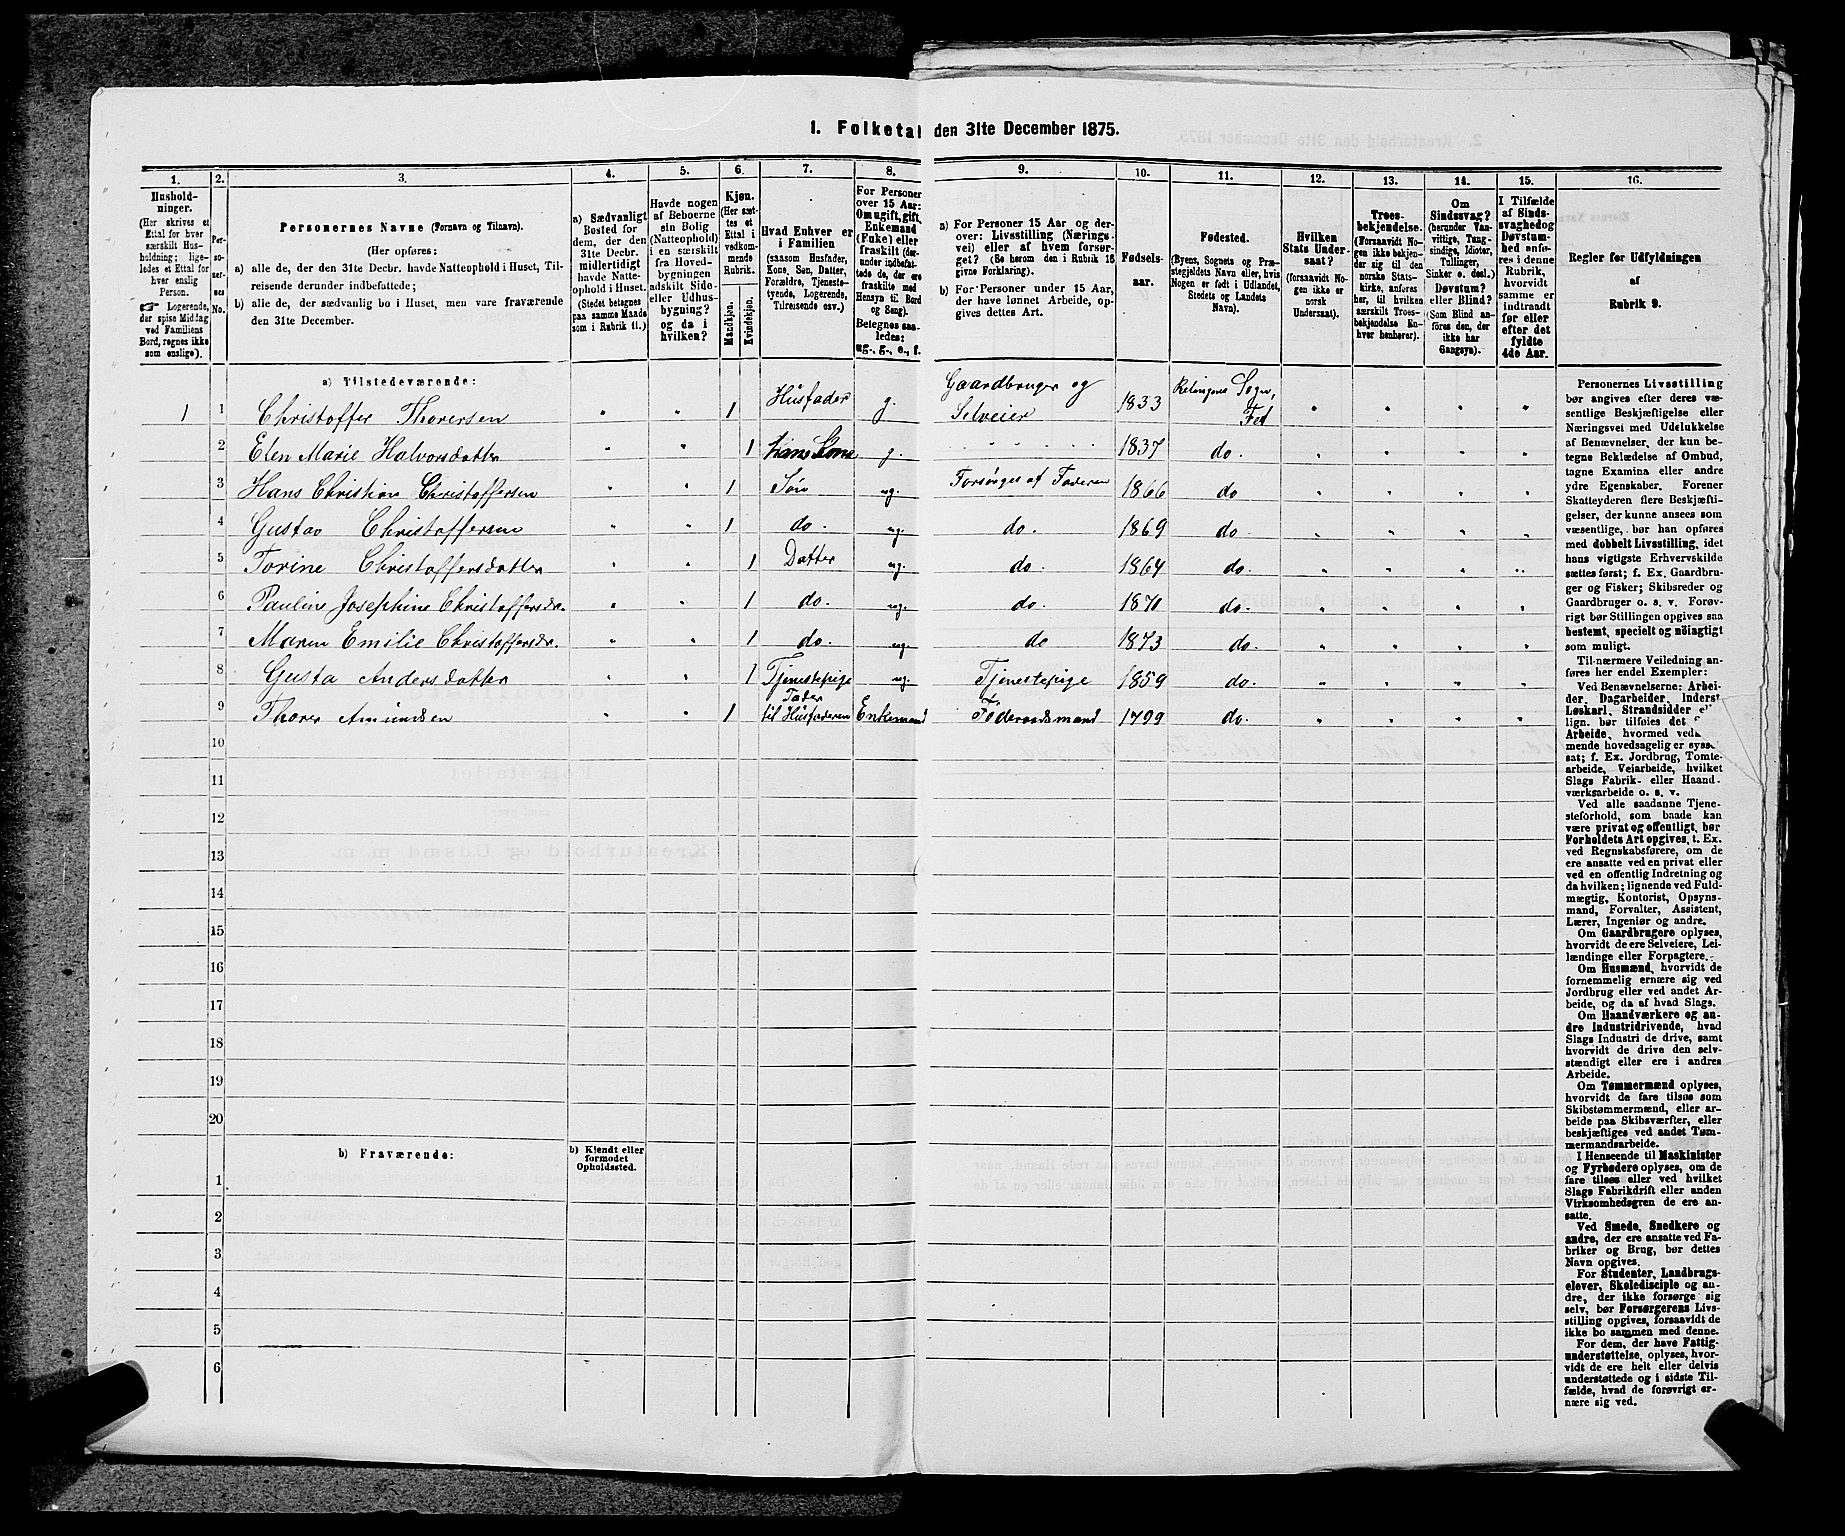 1. Folketal den 31te December 1875.
1.
2.
3.
4.
5.
6.
7.
8.
9.
10.
11.
12.
13.
14.
15.
16.
Hushold-
ninger.
(Her skrives et
Ettal for hver
særskilt Hus-
holdning; lige-
ledes et Ettal for
hver enslig
Person.
Logerende,
der spise Middag
ved Familiens
Bord, regnes ikke
som enslige).
Per-
so-
ner-
nes
No.
Personernes Navne (Fornavn og Tilnavn).
(Her opføres:
a) alle de, der den 31te Decbr. havde Natteophold i Huset, Til-
reisende derunder indbefattede;
b) alle de, der sædvanlig bo i Huset, men vare fraværende
den 31te December.
a) Sædvanligt
Bosted for
dem, der den
31te Decbr.
midlertidigt
havde Natte-
ophold i Huset.
(Stedet betegnes
paa samme Maade
som i Rubrik 11.)
Havde nogen
af Beboerne
sin Bolig
(Natteophold)
i en særskilt
fra Hoved-
bygningen
adskilt Side-
eller Udhus-
bygning?
og da i
hvilken?
Kjøn.
(Her sæt-
tes et
Ettal i
vedkom-
mende
Rubrik.
Mandkjøn.
Kvindekjøn.
Hvad Enhver er
i Familien
(saasom Husfader,
Kone, Søn, Datter,
Forældre, Tjeneste-
tyende, Logerende,
Tilreisende osv.)
For Personer
over 15 Aar:
Om ugift, gift,
Enkemand
(Enke) eller
fraskilt (der-
under indbefat-
tede de, der ere
fraskilte med
Hensyn til Bord
og Seng).
Betegnes saa-
ledes:
ug., g., e., f.
a) For Personer 15 Aar og der-
over: Livsstilling (Nærings-
vei) eller af hvem forsør-
get? (Se herom den i Rubrik 16
givne Forklaring).
b) For Personer under 15 Aar,
der have lønnet Arbeide, op-
gives dettes Art.
Fødsels-
aar.
Fødested.
(Byens, Sognets og Præ-
stegjeldets Navn eller, hvis
Nogen er født i Udlandet,
Stedets og Landets
Navn).
Hvilken
Stats Under-
saat?
(forsaavidt No-
gen ikke er
norsk
Undersaat).
Troes-
bekjendelse.
(Forsaavidt No-
gen ikke bekjen-
der sig til den
norske Stats-
kirke, anføres
her, til hvilken
særskilt Troes-
bekjendelse En-
hver henhører).
Om
Sindssvag?
(herunder Van-
vittige, Tung-
sindige, Idioter,
Tullinger,
Sinker o. desl.)
Døvstum?
eller Blind?
(Som Blind an-
føres den, der
ikke har
Gangsyn).
I Tilfælde
af Sinds-
svaghed og
Døvstum-
hed anfø-
res i denne
Rubrik,
hvorvidt
samme er
indtraadt
før eller
efter det
fyldte
4de Aar.
Regler for Udfyldningen
af
Rubrik 9.
a) Tilstedeværende:
1 1 Christoffer Thoresen " " 1 Husfader g. Gaardbruger og Selveier 1833 Sogn, " " " "
2 Elen Marie Halvorsdatter " " 1 g. 1837 do.
3 Hans Christian Christoffersen " " 1 Søn ug. Forsørges af Faderen 1866 do " " " "
4 Gustav Christoffersen " " 1 do. ug. do. 1869 do. " " " "
5 Torine Christoffersdatter " " 1 Datter ug. do. 1864 do. " " " "
6 Pauline Josephine Christoffersdr. " " 1 do. ug. do. 1870 do. " " " "
7 Maren Emilie Christoffersdr. " " 1 do. ug. do 1873 do. " " " "
8 Gusta Andersdatter " " 1 Tjenestepige ug. Tjenestepige 1859 do. " " " "
9 Thorer Amundsen " " 1 Fader til Husfaderen Enkemand Føderaadsmand 1799 do. " " " "
10
11
12
13
14
15
16
17
18
19
20
b) Fraværende:
b) Kjendt eller
formodet
Opholdssted.
1
2
3
4
5
6
Personernes Livsstilling
bør angives efter deres væ-
sentlige Beskjæftigelse eller
Næringsvei med Udelukkelse
af Benævnelser, der kun be-
tegne Beklædelse af Ombud,
tagne Examina eller andre
ydre Egenskaber. Forener
Skatteyderen flere Beskjæfti-
gelser, der kunne ansees som
væsentlige, bør han opføres
med dobbelt Livsstilling, idet
hans vigtigste Erhvervskilde
sættes først; f. Ex. Gaardbru-
ger og Fisker; Skibsreder og
Gaardbruger o. s. v. Forøv-
rigt bør Stillingen opgives saa
bestemt, specielt og nöiagtigt
som muligt.
Til nærmere Veiledning an-
føres her endel Exempler:
Ved Benævnelserne: Arbei-
der, Dagarbeider, Inderst
Løskarl, Strandsidder
lign. bør tilføies det
Arbeide, hvormed ved
mende hovedsagelig er sys
sat; f. Ex. Jordbrug, Tomte-
arbeide, Veiarbeide, hvilket
Slags Fabrik- eller Haand-
værksarbeide o. s. v.
Ved alle saadanne Tjene-
steforhold, som baade kan
være privat og offentligt, bør
Forholdets Art opgives, t. Ex.
ved Regnskabsførere, om de
ere ansatte ved en privat eller
ved en offentlig Indretning og
da hvilken; lignende ved Fuld-
mægtig, Kontorist, Opsyns-
mand, Forvalter, Assistent,
Lærer, Ingeniør og andre.
Om Gaardbrugere oplyses,
hvorvidt de ere Selveiere, Lei-
lændinge eller Forpagtere.
Om Husmænd, hvorvidt de
fornemmelig ernære sig ved
Jordbrug eller ved andet Ar-
beide, og da af hvad Slags.
Om Haandværkere og an-
dre Industridrivende, hvad
Slags Industri de drive, samt
hvorvidt de drive den selv-
stændigt eller ere i andres
Arbeide.
Om Tømmermænd oplyses,
hvorvidt de fare tilsøs som
Skibstømmermænd, eller ar-
beide paa Skibsværfter, eller
beskjæftiges ved andet Tøm-
mermandsarbeide.
I Henseende til Maskinister
og Fyrbødere oplyses, om de
fare tilsøs eller ved hvilket
Slags Fabrikdrift eller anden
Virksomhedsgren de ere an-
satte.
Ved Smede, Snedkere og
andre, der ere ansatte ved Fa-
briker og Brug, bør dettes
Navn opgives.
For Studenter, Landbrugs-
elever, Skoledisciple og an-
dre, der ikke forsørge sig
selv, bør Forsørgerens Livs-
stilling opgives, forsaavidt de
ikke bo sammen med denne.
For dem, der have Fattig-
understøttelse, oplyses, hvor-
vidt de ere helt eller delvis
understøttede og i sidste Til-
fælde, hvad de forøvrigt er-
nære sig ved.